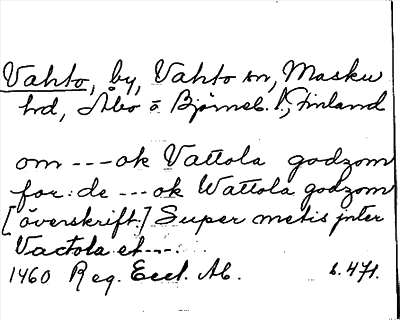 Vahto, by, Vahto sn, Masku
hd, Åbo o Björneb. l, Finland
om --- ok Vattola godzom
for: de --- ok Wattola godzom
[överskrift:] Super metis jnter
Vactola et ---.
1460 Reg. Eccl. Ab. s. 471.